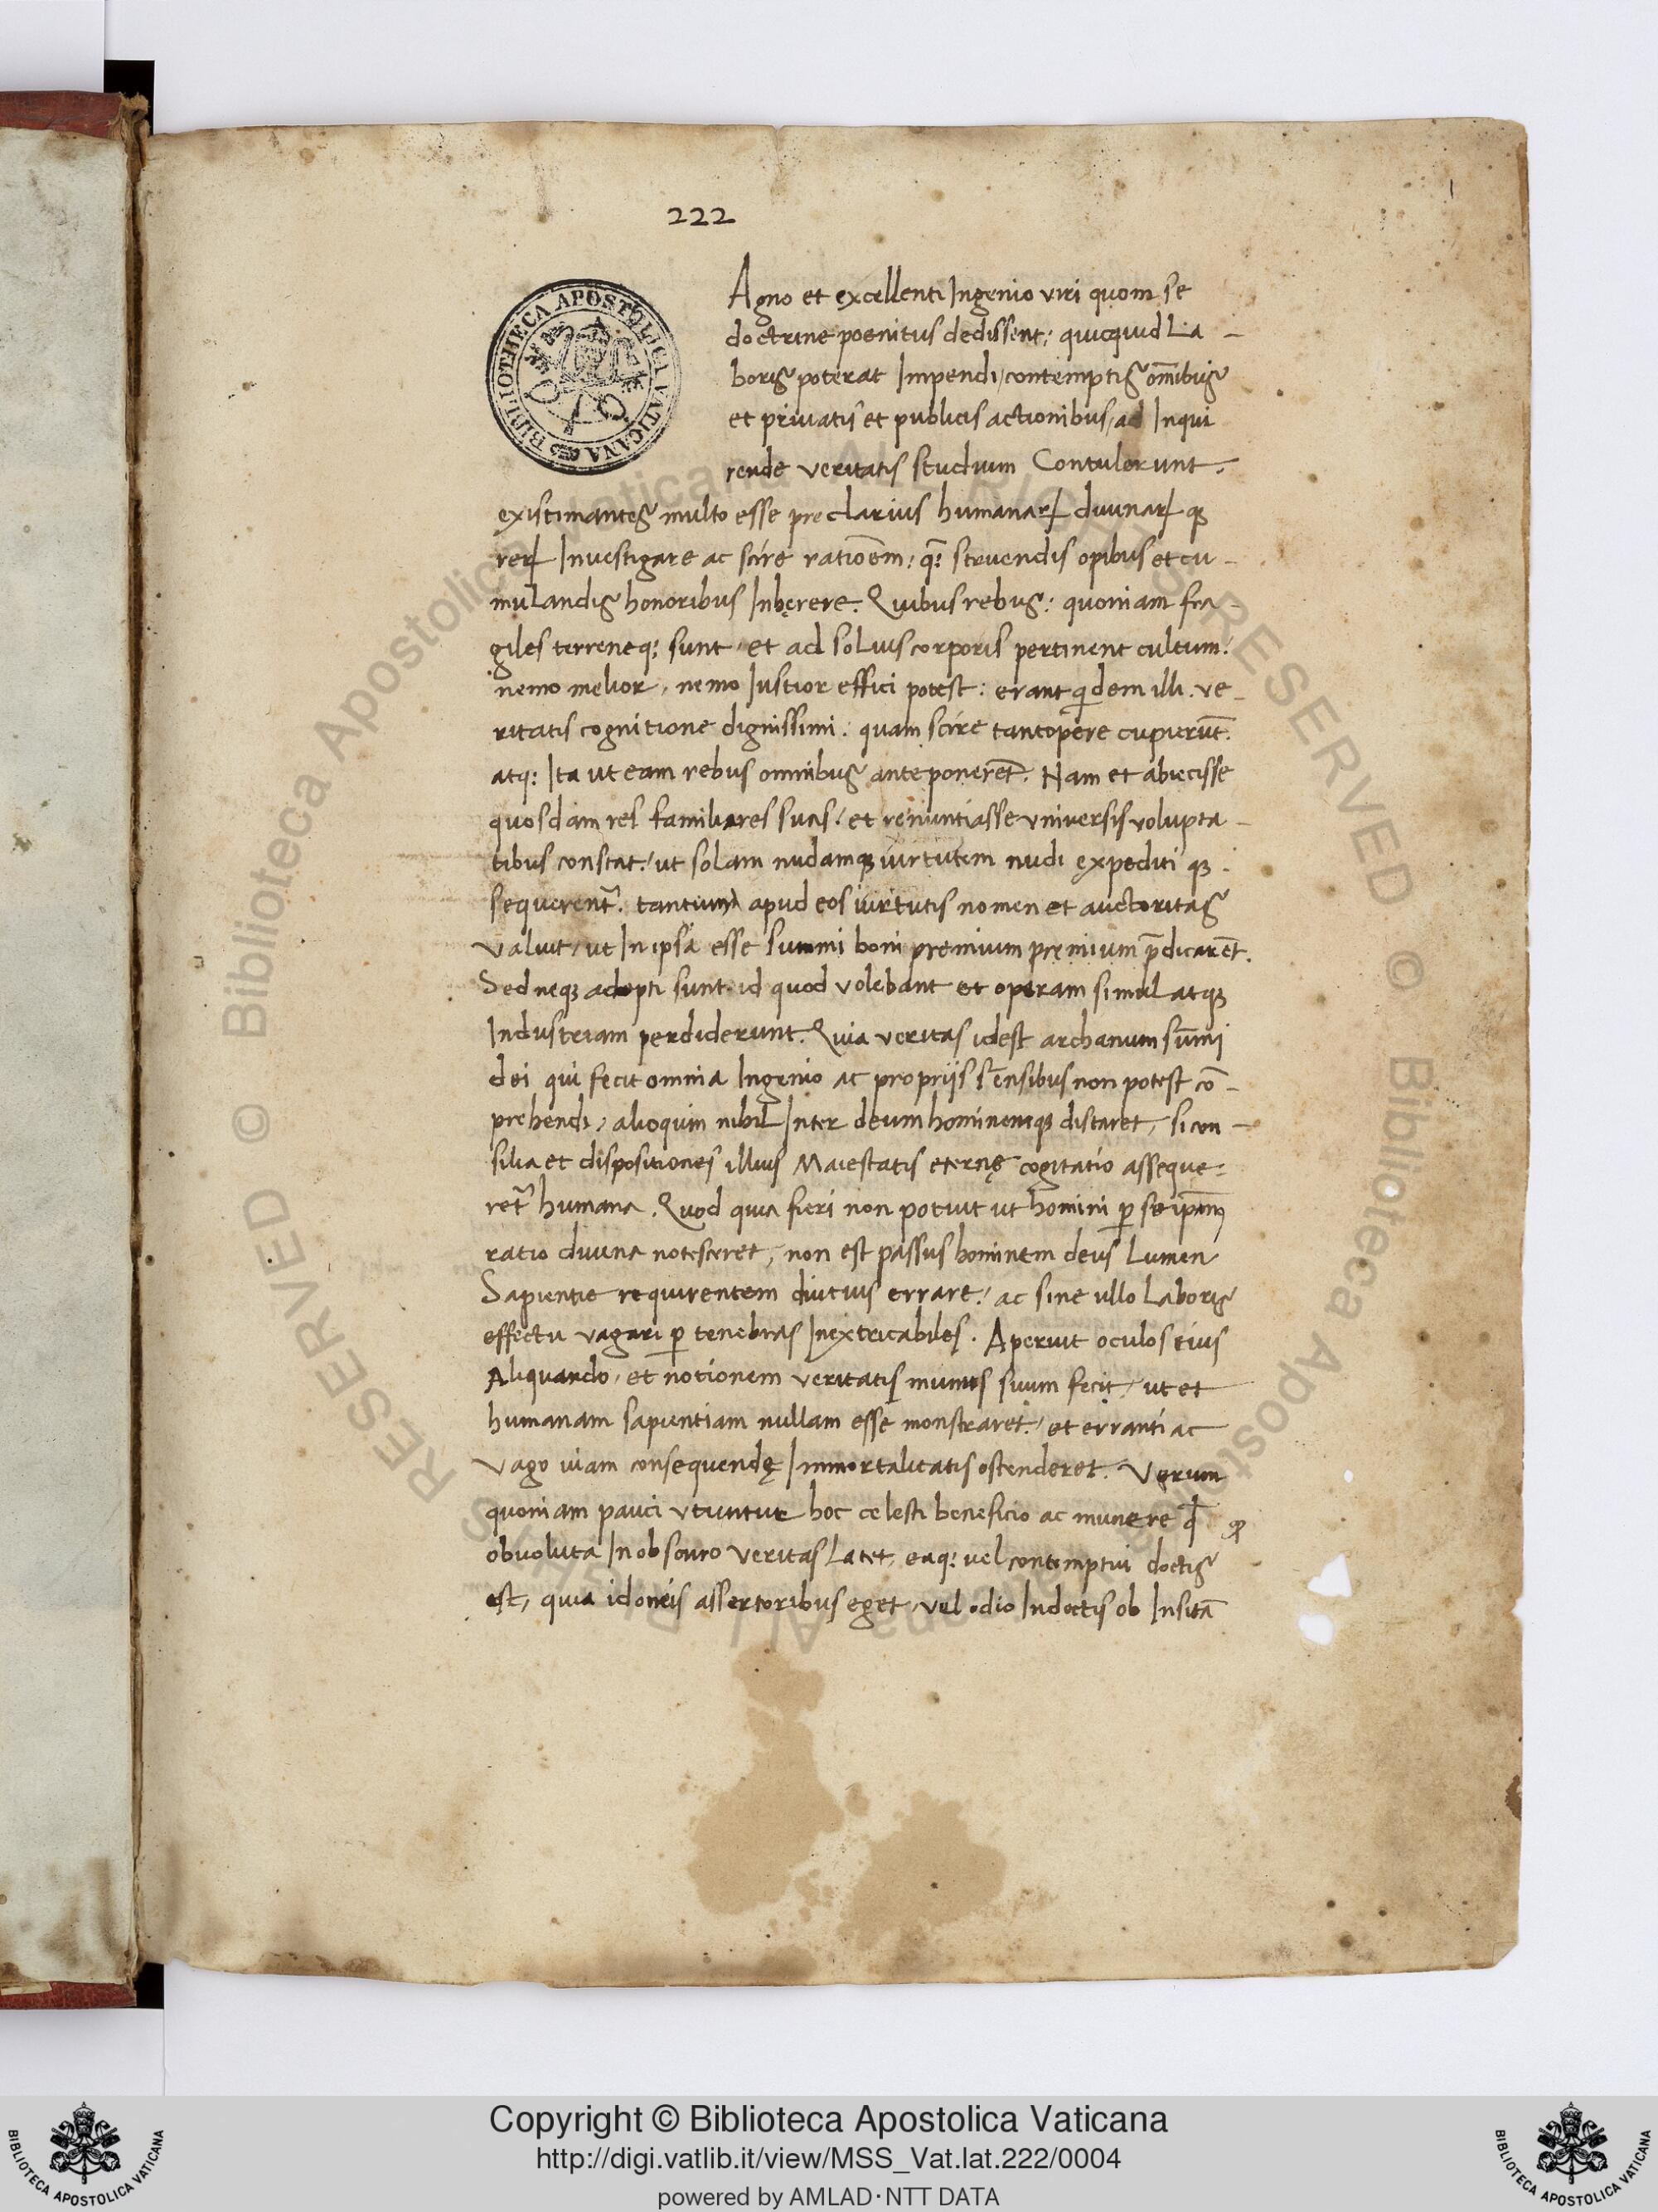 222
1
BIBLIOTHECA APOSTOLICA VATICANA
Agno et excellenti Ingenio viri quom se
doctrine poenitus dedissent: quicquid La-
boris poterat Impendi/contemptis om̅ibus
et priuatis et publicis actionibus/ad Inqui
rende veritatis studium Contulerunt.
existimantes multo esse preclarius humanaꝝ diuinaꝝ qꝫ
reꝝ Inuestigare ac scire ratiōem: q̅: struendis opibus et cu-
mulandis honoribus Inhęrere. Quibus rebus: quoniam fra-
giles terreneq: sunt et ad solius corporis pertinent cultum:
nemo melior, nemo Iustior effici potest: erant qͥdem illi. ve-
ritatis cognitione dignissimi: quam scire tantopere cupierūt.
atq: Ita ut eam rebus omnibus anteponerēt. Nam et abiecisse
quosdam res familiares suas/et renuntiasse vniuersis volupta-
tibus constat/ut solam nudamqꝫ uirtutem nudi expeditiqꝫ.
sequerent̃. tantum apud eos uirtutis nomen et auctoritas
valuit/ut In ipsa esse summi boni premium premium p̄dicarēt.
Sed neqꝫ adepti sunt id quod volebant et operam simul atqꝫ
Industriam perdiderunt. Quia veritas idest archanum sūmi
dei qui fecit omnia Ingenio ac proprijs sensibus non potest cō-
prehendi/alioquin nihil Inter deum hominemqꝫ distaret, si con-
silia et dispositiones illius Maiestatis eternę cogitatio asseque-
ret̃ humana. Quod quia fieri non potuit ut homini ꝑ se ip̅am
ratio diuina notesceret, non est passus hominem deus Lumen
Sapientie requirentem diutius errare/ac sine ullo Laboris
effectu vagari ꝑ tenebras Inextricabiles. Aperuit oculos eius
Aliquando/et notionem veritatis munus suum fecit/ut et
humanam sapientiam nullam esse monstraret/et erranti ac
vago uiam consequendę Immortalitatis ostenderet. Verum
quoniam pauci vtuntur hoc celesti beneficio ac munere
obuoluta In obscuro veritas Latet, eaq: uel contemptui doctis
est, quia idoneis assertoribus eget, vel odio Indoctis ob Insitā
© Biblioteca Apostolica Vaticana ALL RIGHTS RESERVED
© Biblioteca Apostolica Vaticana ALL RIGHTS RESERVED
Copyright © Biblioteca Apostolica Vaticana
http://digi.vatlib.it/view/MSS_Vat.lat.222/0004
powered by AMLAD·NTT DATA
BIBLIOTECA APOSTOLICA VATICANA
BIBLIOTECA APOSTOLICA VATICANA